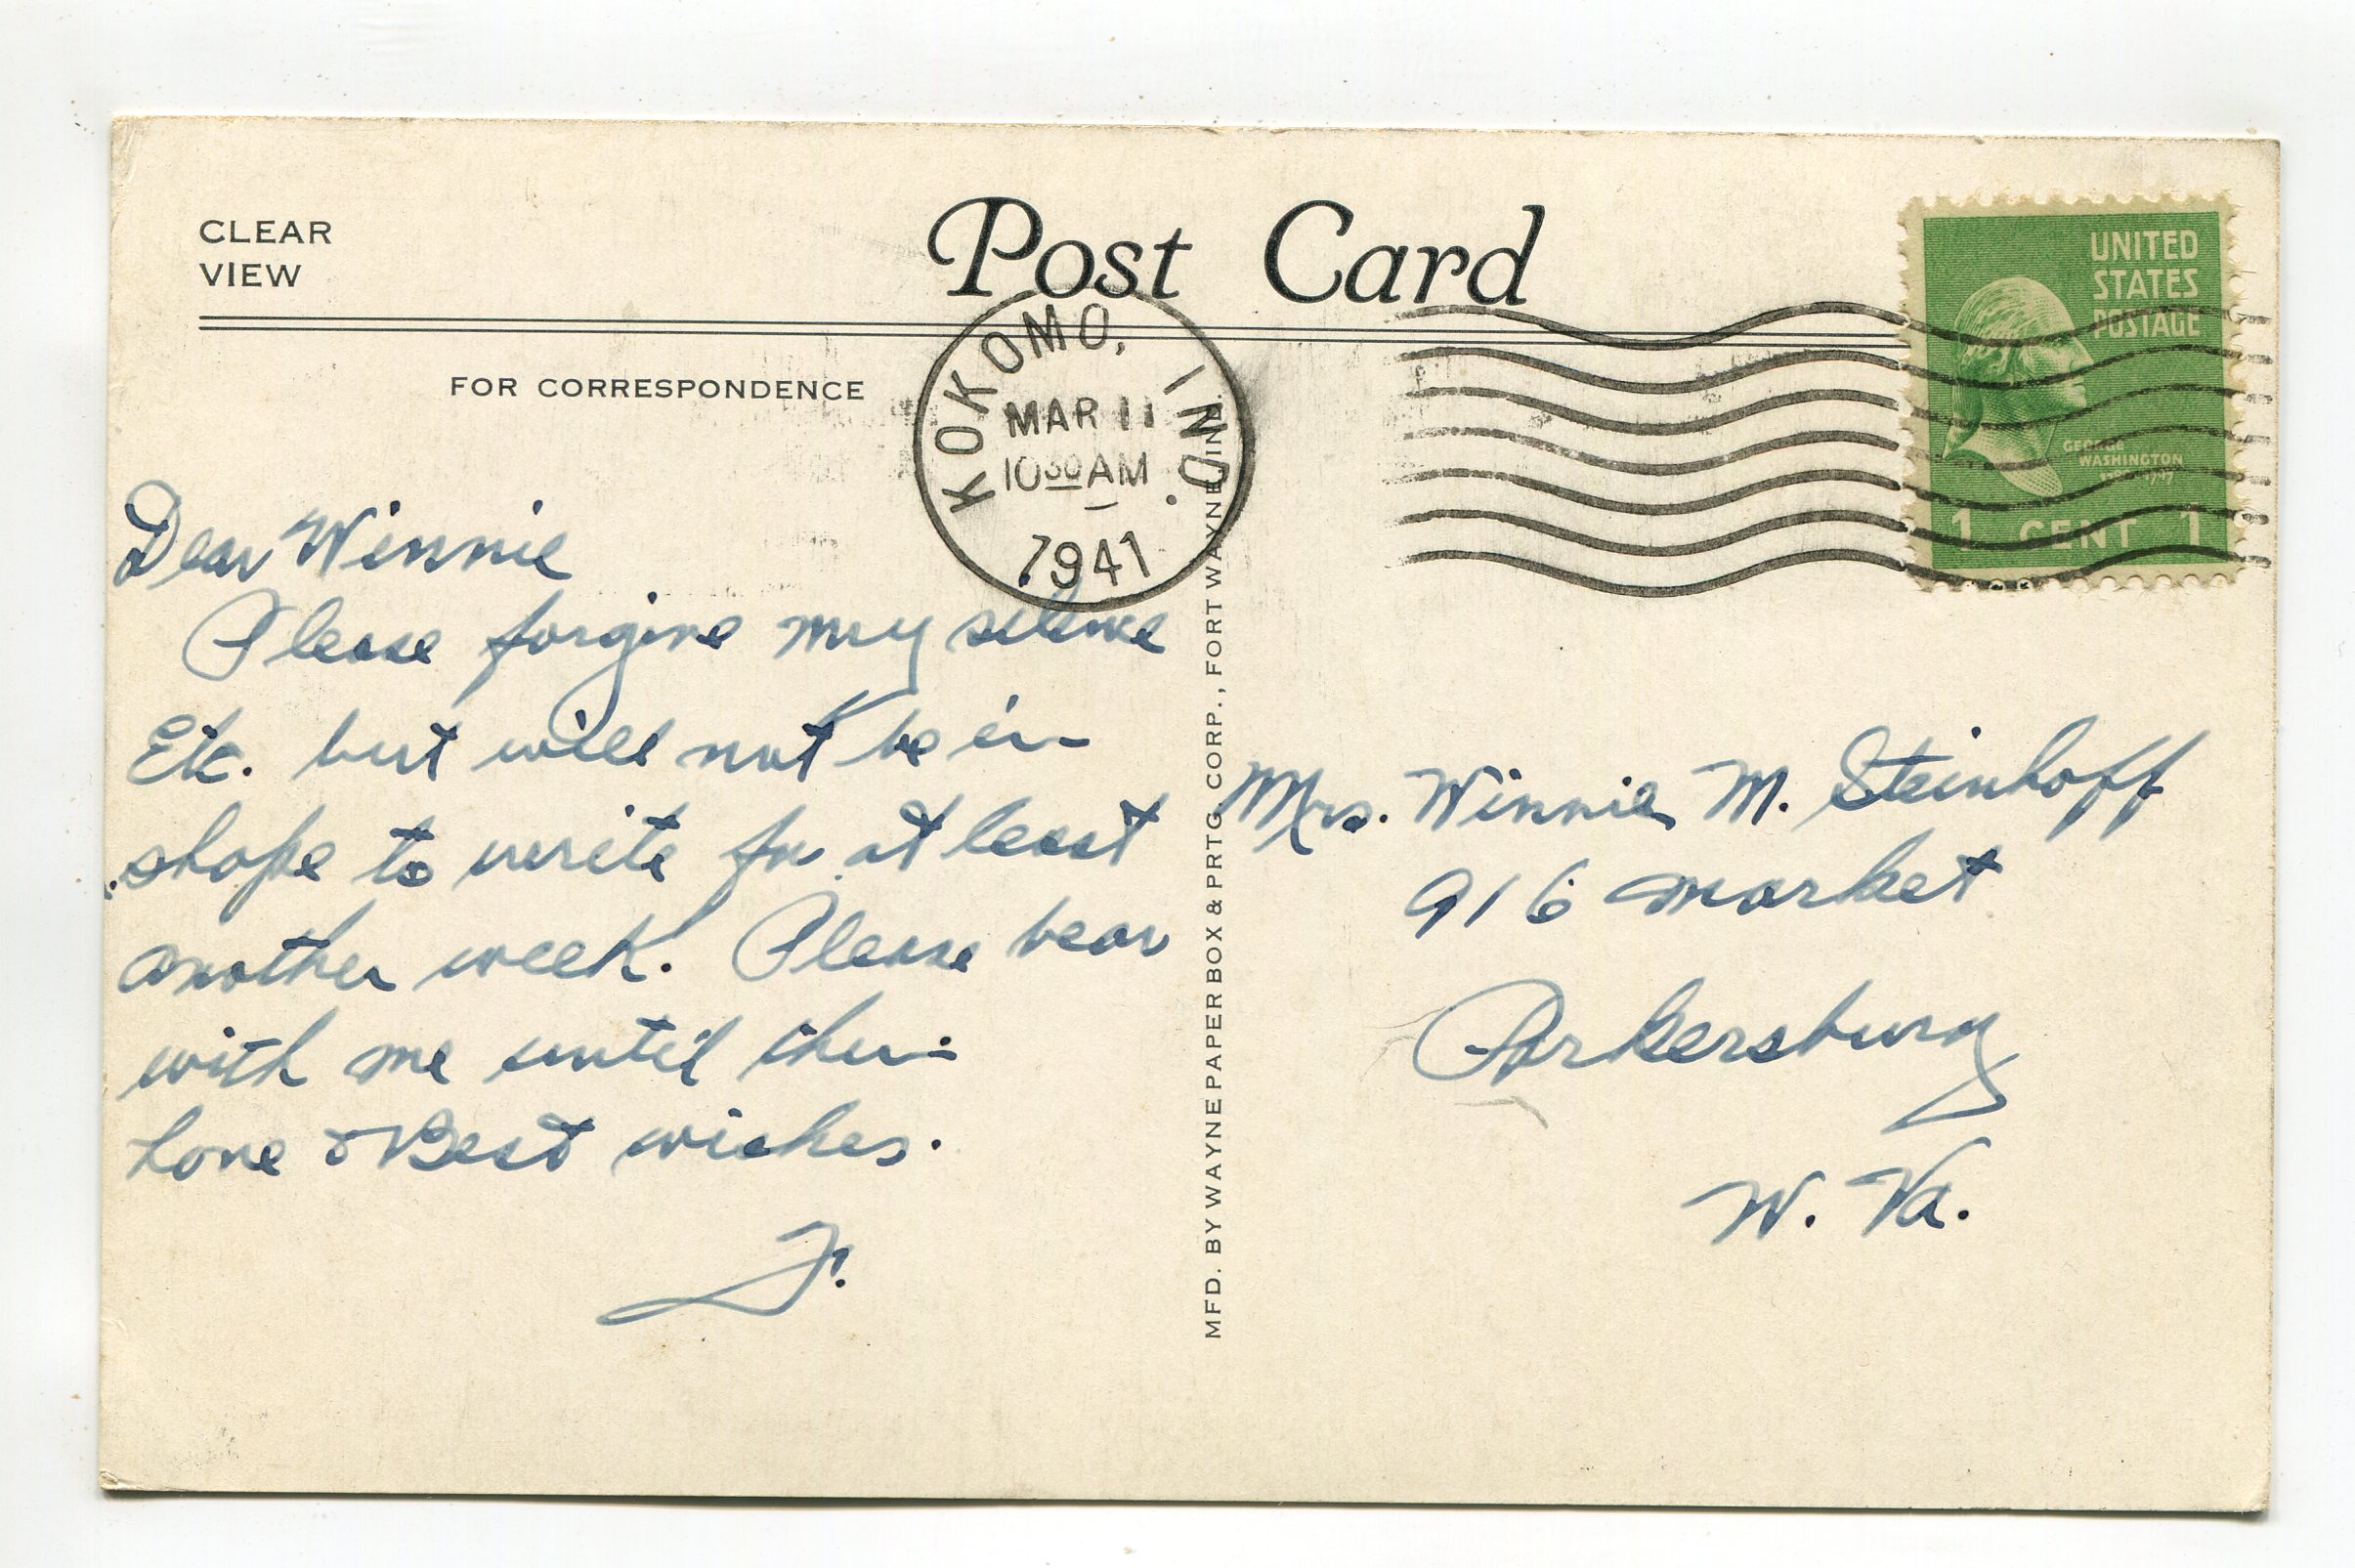 CLEAR
VIEW
Post Card
FOR CORRESPONDENCE
KOKOMO, IND.
MAR 11
10 30 AM
1941
UNITED
STATES
POSTAGE
GEORGE
WASHINGTON
1 CENT 1
Dear Winnie
Please forgive my silence
Etc. but will not be in
shape to write for at least
another week. Please bear
with me until then -
Love & Best wishes.
F.
MFD. BY WAYNE PAPER BOX & PRTG. CORP., FORT WAYNE, IND.
Mrs. Winnie M. Steinhoff
916 Market
Parkersburg
W. Va.